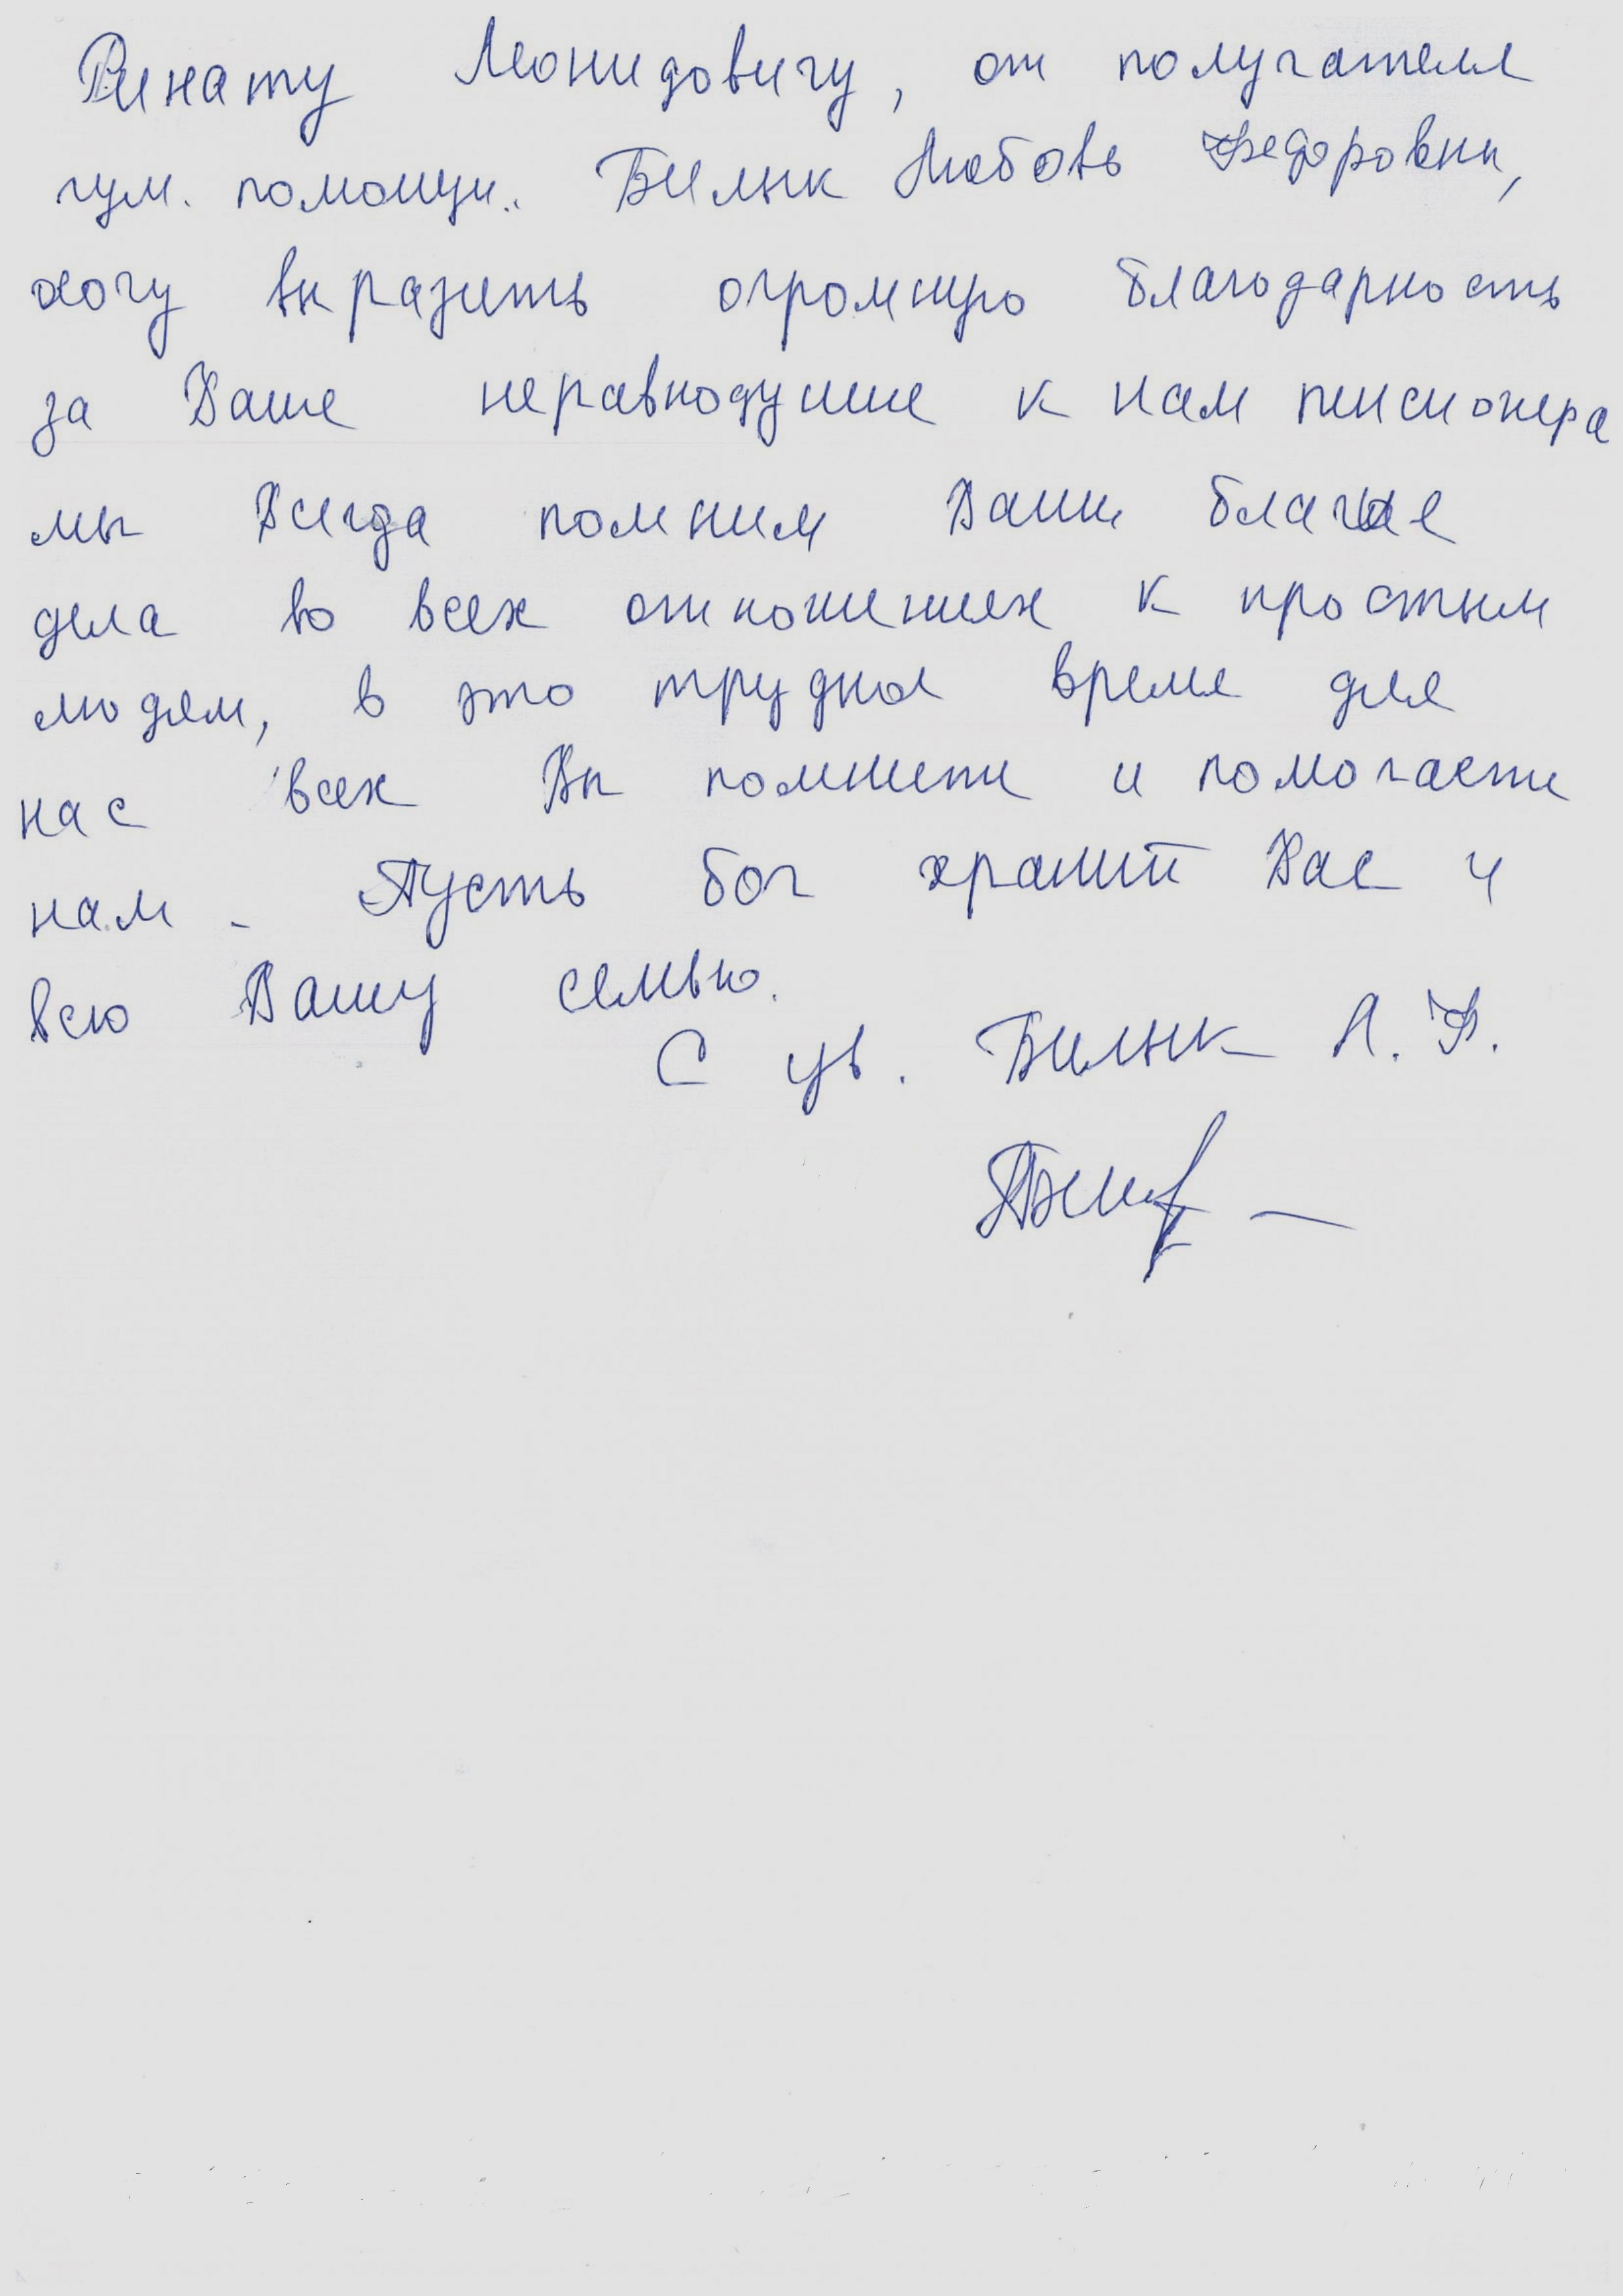 Ринату Леонидовичу, от получателя
гум. помощи.. Билык Любовь Федоровны,
хочу выразить огромную благодарность
за Ваше неравнодушие к нам пенсионера
мы Всегда помним Ваши благие
дела во всех отношениях к простым
людям, в это трудное время для
нас всех Вы помните и помогаете
нам. Пусть бог хранит Вас и
всю Вашу семью.
С ув. Билык Л. Ф.